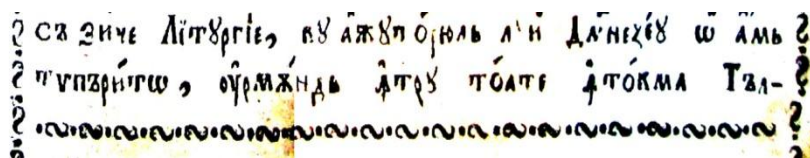 съ зиче Лїтꙋргїе, кꙋ аѫꙋторюль лꙋи Дꙋмнезеꙋ ѡ амь
типъритѡ, оурмѫндь ꙟтрꙋ тоате ꙟтокма Тъл-